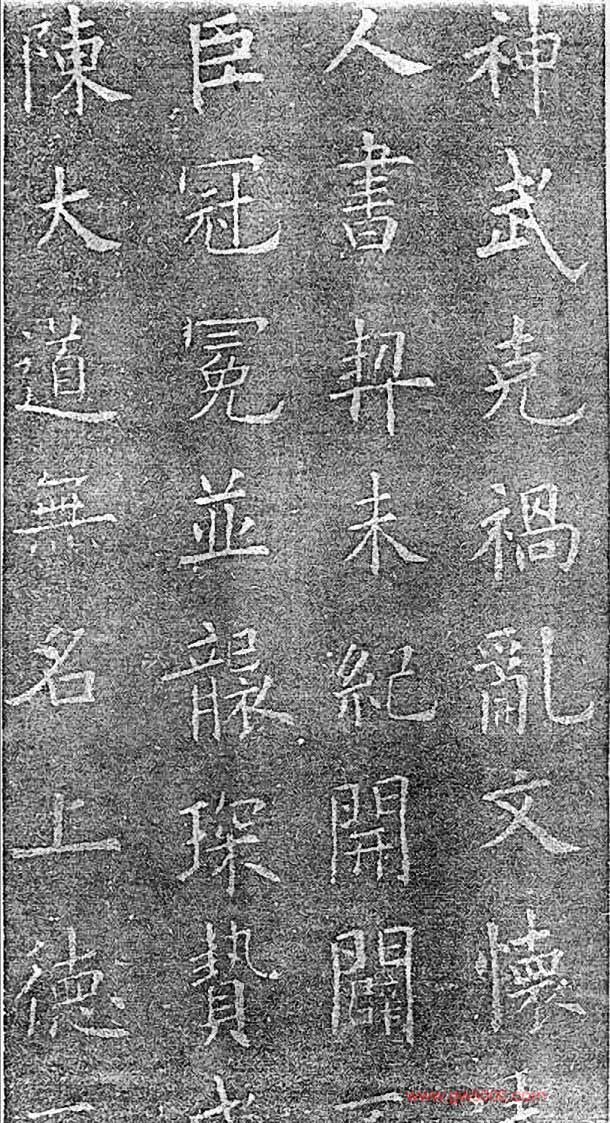 神武克禍亂文懷
人書契未紀開闢
臣冠冕並襲琛贄
陳大道無名上德